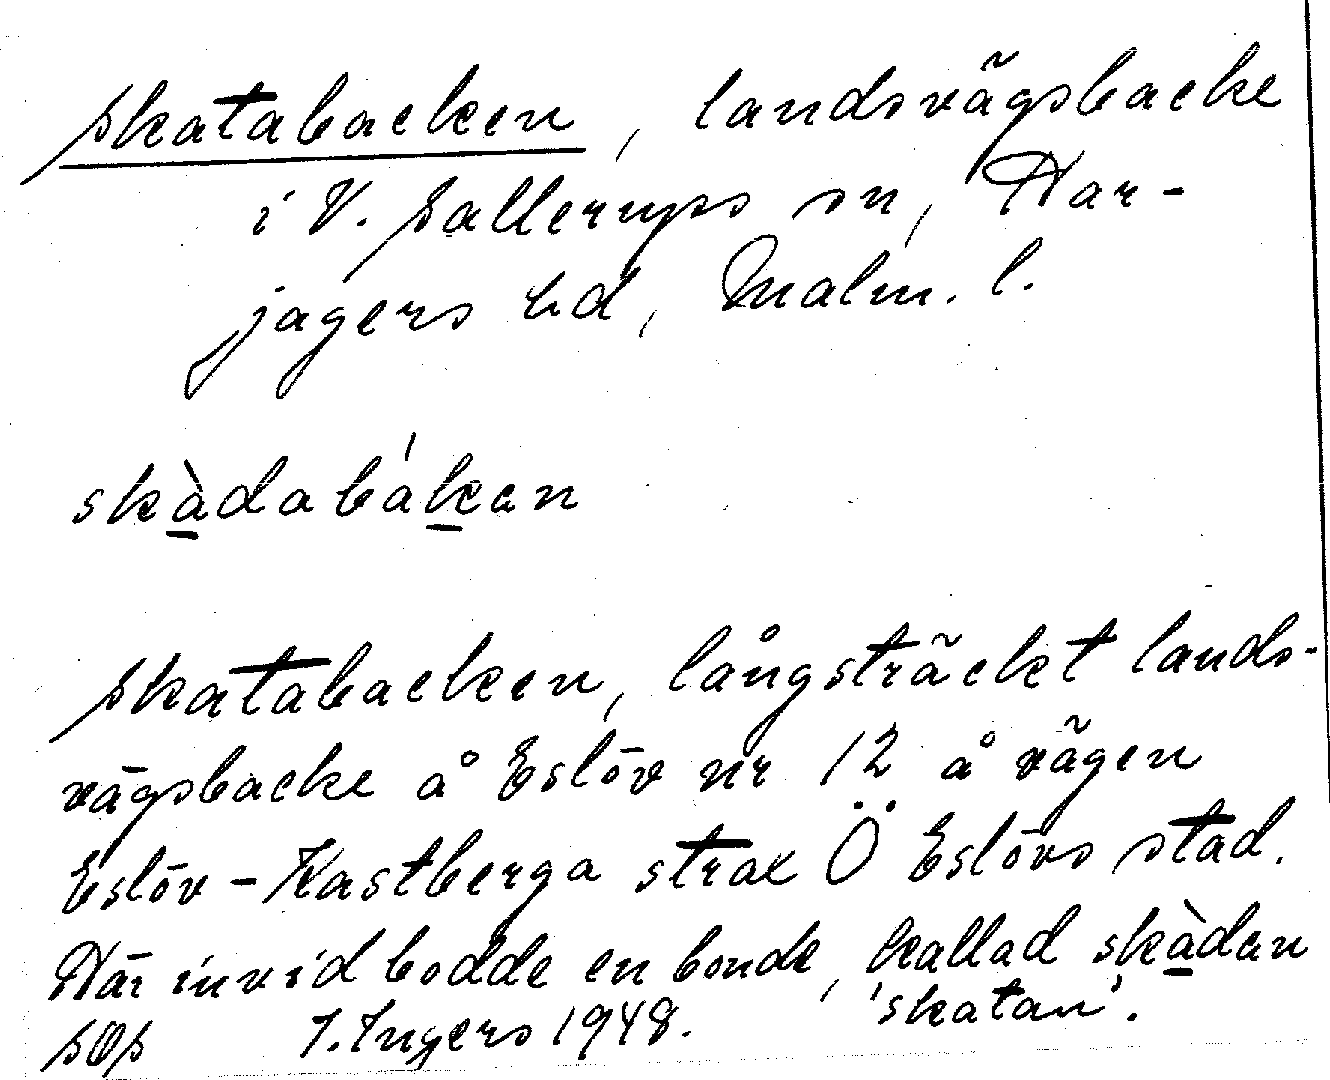 Skatabacken, landsvägsbacke
i V. Sallerups sn, Har-
jagers hd, Malm. l.
skàdabákan
Skatabacken, långsträckt lands-
vägsbacke å Eslöv nr 12 å vägen
Eslöv - Kastberga strax Ö Eslövs stad.
Här invid bodde en bonde, kallad skàdan
'skatan'.
SOS I. Ingers 1948.